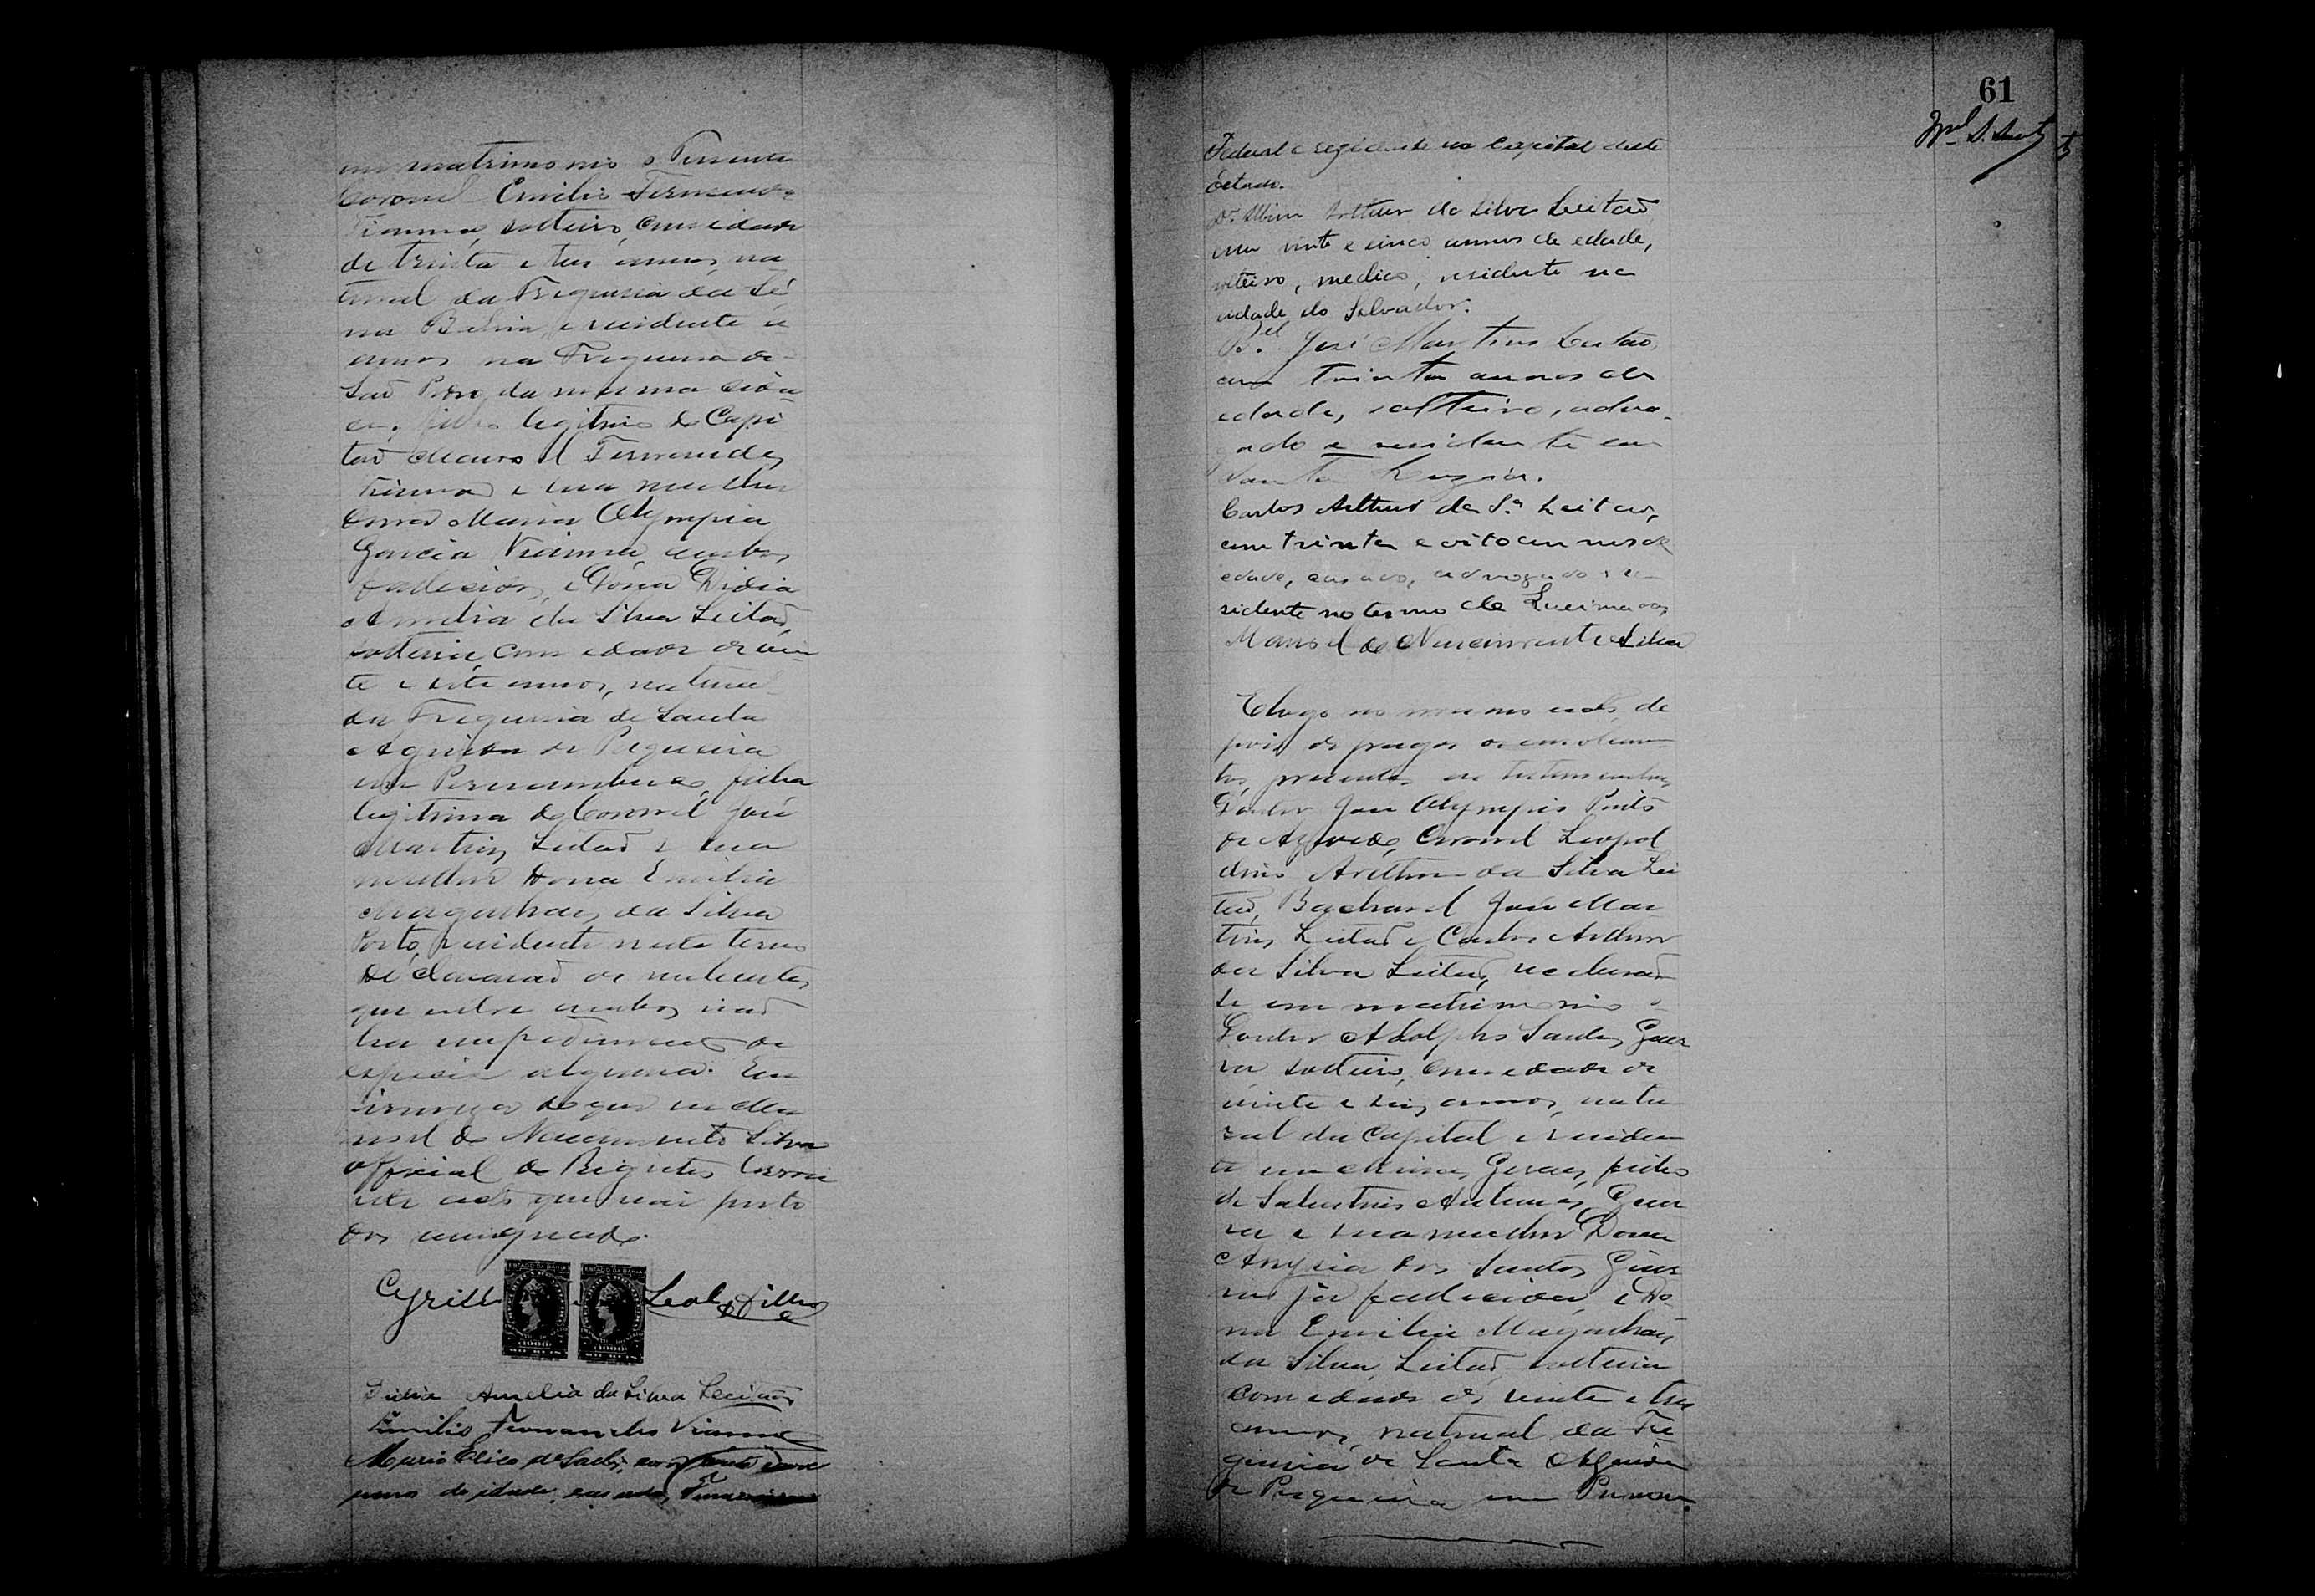 em matrimonio o Tenente
Coronel Emilio Fernandes
Vianna, solteiro, com edade
de trinta e tres annos, na
tural da Freguesia da Sé
na Bahia, e residente a
annos na Freguesia de
São Pedro da mesma
filho legitimo do Capi
tão Manoel Fernandes
Vianna e sua mulher
Dona Maria Olympia
Garcia Vianna, ambos
fallecidos, e Dona Didia
Amelia da Silva Leitão,
solteira, com edade de vin
te e sete annos, natural
da Freguesia de Santa
Agueda de Pesqueira
em Pernambuco, filha
legitima do Coronel José
Martins Leitão e sua
mulher Dona Emilia
Magalhães da Silva
Porto, residente neste termo
Declararão os nubentes,
que entre ambos não
ha impedimento de
especie alguma. Em
firmeza do que eu Ma
noel do Nascimento Silva
official do Registro, lavrei
este acto que vai por to
dos assignado.
Cyrillo Leal Filho
ESTADO DA BAHIA
ESTADO DA BAHIA
1000
1000
MIL REIS
MIL REIS
Didia Amelia da Silva Leitão
Emilio Fernandes Vianna
Mario
annos de idade, casado,
61
Federal e residente na Capital deste
Estado.
Dr. Arthur da Silva Leitão
com vinte e cinco annos de edade,
solteiro, medico, residente na
cidade do Salvador.
Bel José Martins Leitão,
com trinta annos de
edade, solteiro, advo-
gado e residente em
Santa Luzia.
Carlos Arthur da Sª Leitão,
com trinta e oito annos de
edade, casado, advogado e re-
sidente no termo de Queimadas
Manoel do Nascimento Silva
E logo no mesmo acto, de
pois de pagos os emolumen
tos, presentes as testemunhas,
Doutor José Olympio Pinto
de Azevedo, Coronel Leopol
dino Arthur da Silva Lei
tão, Bacharel José Mar
tins Leitão e Carlos Arthur
da Silva Leitão, receberão
se em matrimonio o
Doutor Adolpho Santos Guer
ra, solteiro, com edade de
vinte e seis annos, natu
ral da Capital e residen
te em Minas Geraes, filho
de Salustino Antunes Guer
ra e sua mulher Dona
Anysia dos Santos Guer
ra já fallecida, e Do
na Emilia Magalhães
da Silva Leitão, solteira
com edade de vinte e tres
annos, natural da Fre
guesia de Santa Agueda
de Pesqueira em Pernam